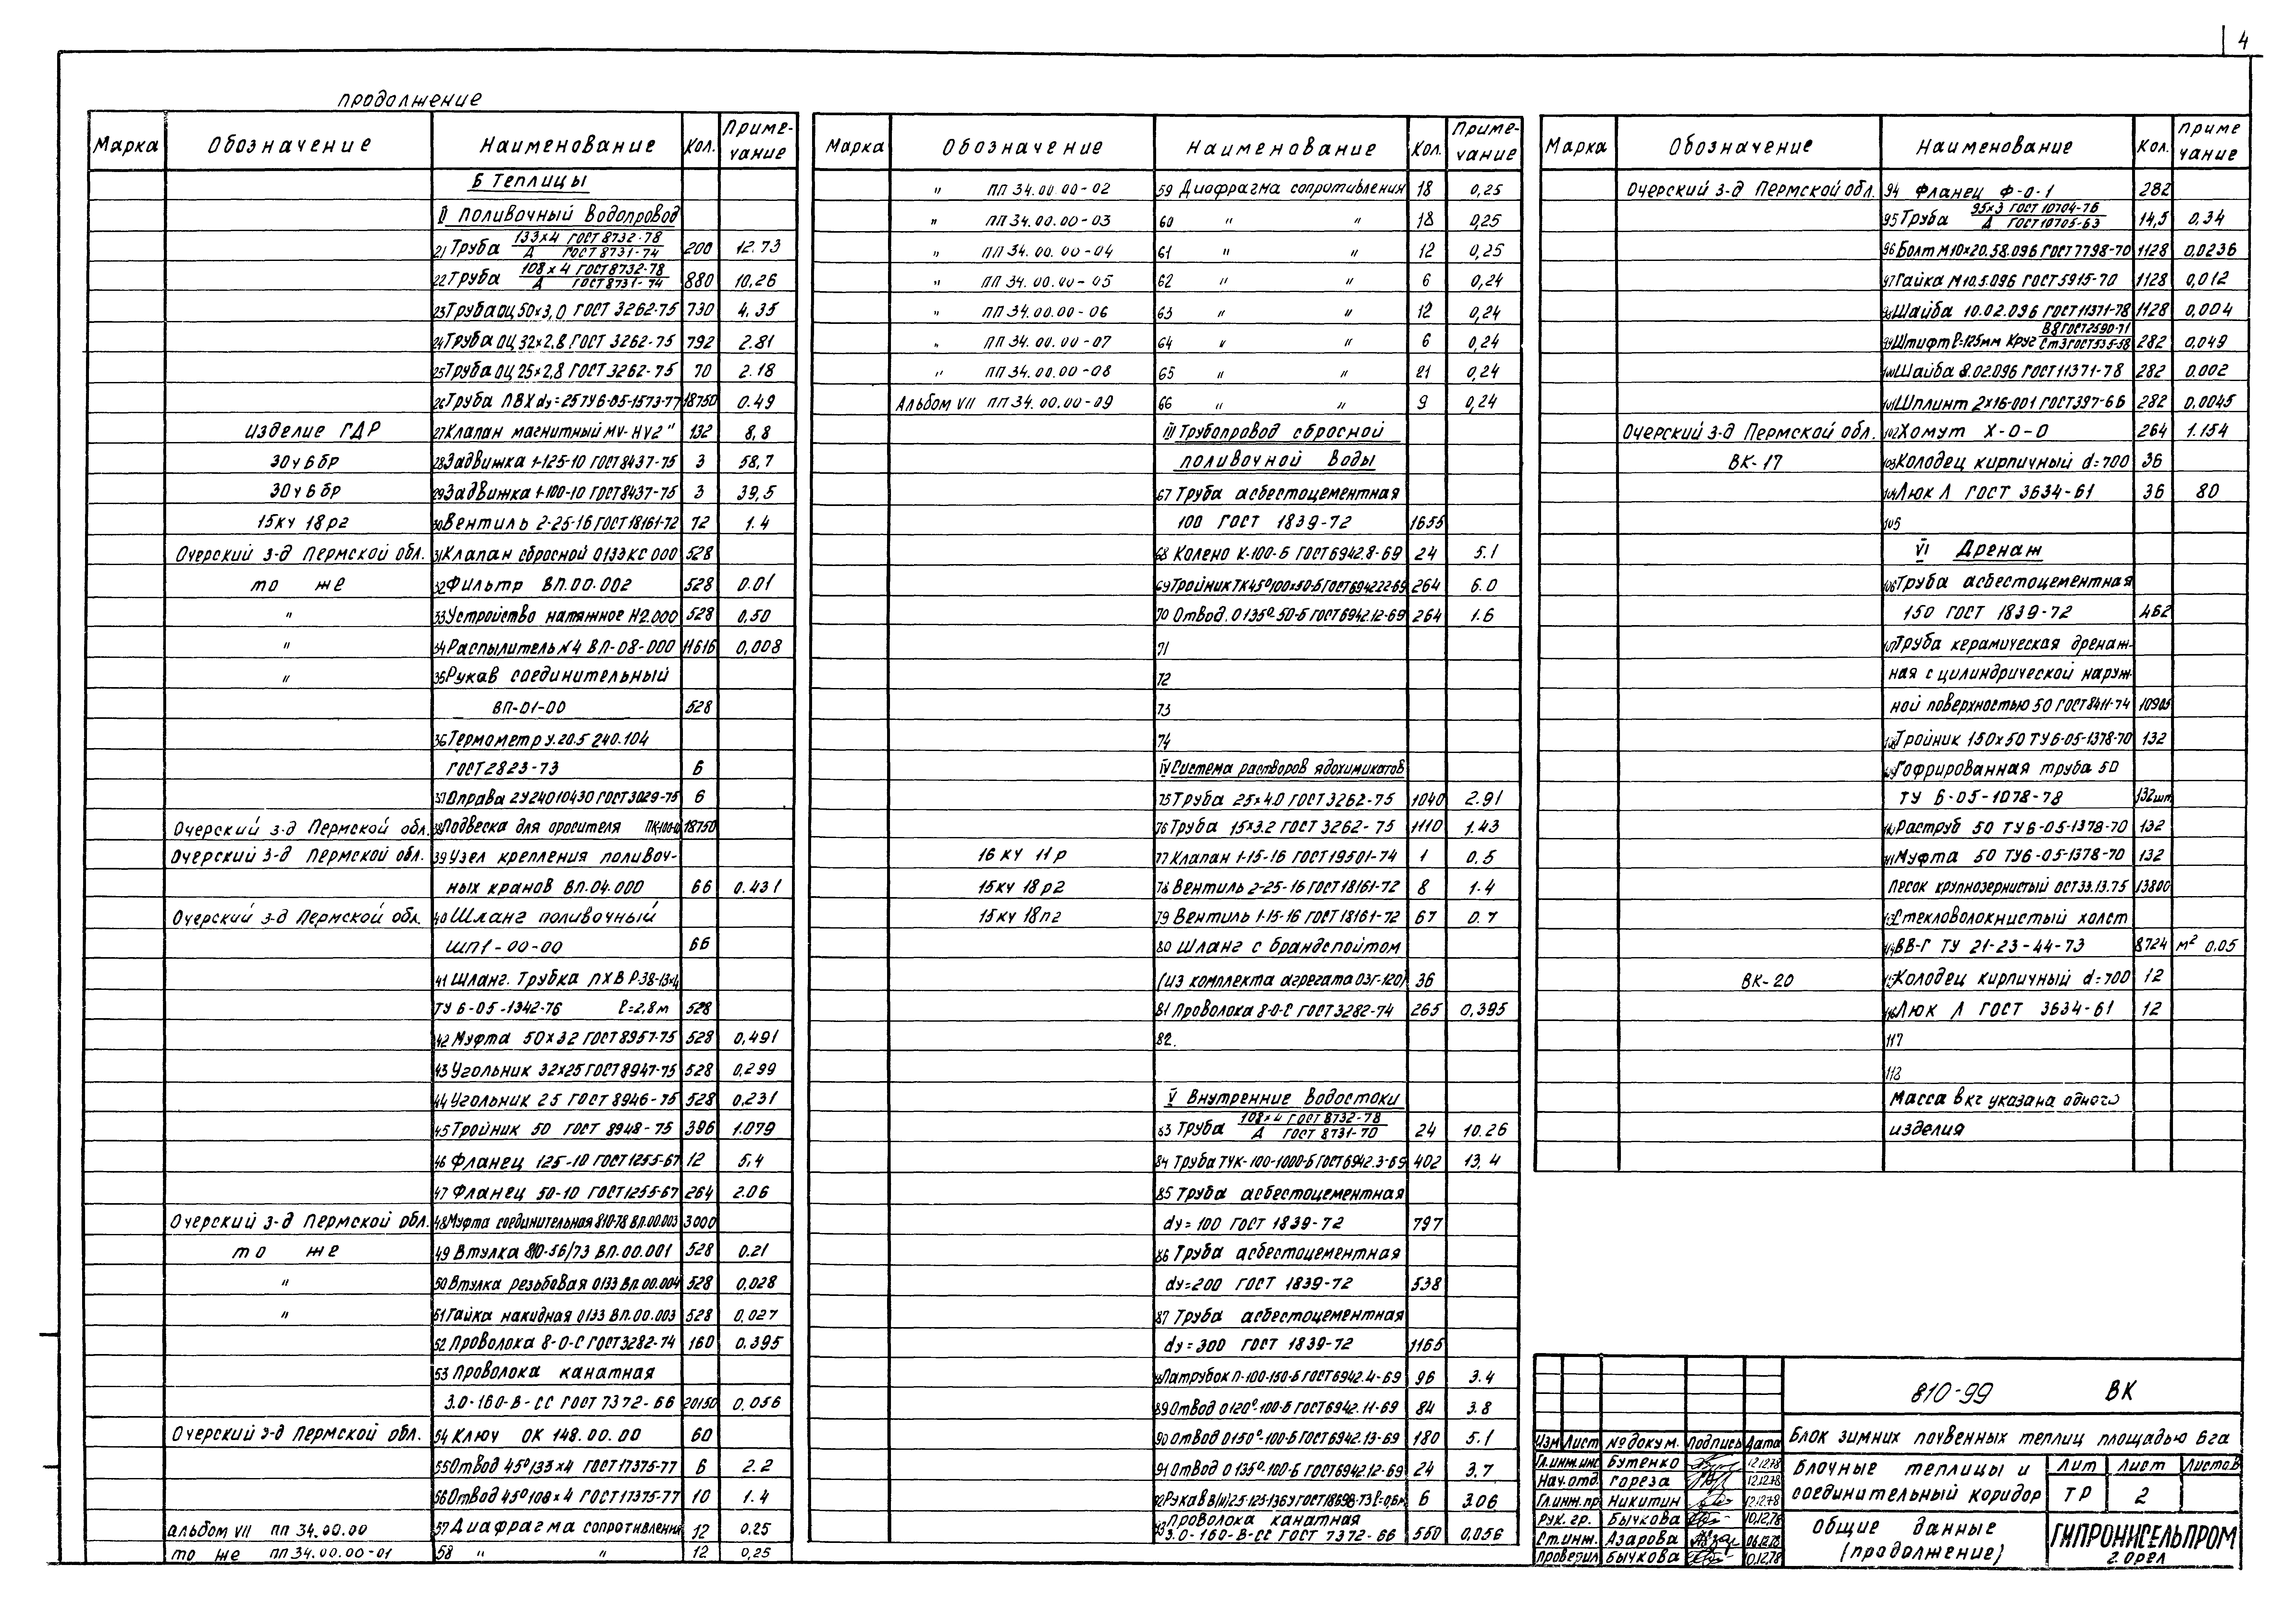 4
продолжение
Марка Обозначение Наименование Кол. Приме-чание
Б Теплицы
II поливочный водопровод
21 Труба 133×4 ГОСТ 8732-78 / Д ГОСТ 8731-74 200 12.73
22 Труба 108×4 ГОСТ 8732-78 / Д ГОСТ 8731-74 880 10,26
23 Труба оц 50×3,0 ГОСТ 3262-75 730 4.35
24 Труба оц 32×2,8 ГОСТ 3262-75 792 2.81
25 Труба оц 25×2,8 ГОСТ 3262-75 70 2.18
26 Труба ПВХ dу=25 ТУ6-05-1573-77 18750 0.49
Изделие ГДР 27 Клапан магнитный MV-HV2" 132 8,8
30ч6бр 28 Задвижка 1-125-10 ГОСТ 8437-75 3 58,7
30ч6бр 29 Задвижка 1-100-10 ГОСТ 8437-75 3 39,5
15кч18р2 30 Вентиль 2-25-16 ГОСТ 18161-72 72 1.4
Очерский з-д Пермской обл. 31 Клапан сбросной 0133КС 000 528
то же 32 Фильтр ВП.00.002 528 0.01
" 33 Устройство натяжное Н2.000 528 0,50
" 34 Распылитель №4 ВП-08-000 11616 0,008
" 35 Рукав соединительный
ВП-01-00 528
36 Термометр У.20.5 240.104
ГОСТ 2823-73 6
37 Оправа 2У24010430 ГОСТ 3029-75 6
Очерский з-д Пермской обл. 38 Подвеска для оросителя ПК-100-0 18750
Очерский з-д Пермской обл. 39 Узел крепления поливоч-
ных кранов ВП.04.000 66 0.431
Очерский з-д Пермской обл. 40 Шланг поливочный
ШП1-00-00 66
41 Шланг. Трубка ПХВ Р-38-13×4
ТУ 6-05-1342-76 ℓ=2,8м 528
42 Муфта 50×32 ГОСТ 8957-75 528 0,491
43 Угольник 32×25 ГОСТ 8947-75 528 0,299
44 Угольник 25 ГОСТ 8946-75 528 0,231
45 Тройник 50 ГОСТ 8948-75 396 1.079
46 Фланец 125-10 ГОСТ 1255-67 12 5,4
47 Фланец 50-10 ГОСТ 1255-67 264 2.06
Очерский з-д Пермской обл. 48 Муфта соединительная 810-78 ВП.00.003 3000
то же 49 Втулка 810-56/73 ВП.00.001 528 0.21
" 50 Втулка резьбовая 0133 ВП.00.004 528 0,028
" 51 Гайка накидная 0133 ВП.00.003 528 0,027
52 Проволока 8-О-С ГОСТ 3282-74 160 0.395
53 Проволока канатная
3.0-160-В-СС ГОСТ 7372-66 20150 0,056
Очерский з-д Пермской обл. 54 Ключ ОК 148.00.00 60
55 Отвод 45° 133×4 ГОСТ 17375-77 6 2.2
56 Отвод 45° 108×4 ГОСТ 17375-77 10 1.4
альбом VII ПП 34.00.00 57 Диафрагма сопротивления 12 0.25
то же ПП 34.00.00-01 58 " " 12 0,25
Марка Обозначение Наименование Кол. Приме-чание
" ПП 34.00.00-02 59 Диафрагма сопротивления 18 0,25
" ПП 34.00.00-03 60 " " 18 0,25
" ПП 34.00.00-04 61 " " 12 0,25
" ПП 34.00.00-05 62 " " 6 0,24
" ПП 34.00.00-06 63 " " 12 0,24
" ПП 34.00.00-07 64 " " 6 0,24
" ПП 34.00.00-08 65 " " 21 0,24
Альбом VII ПП 34.00.00-09 66 " " 9 0,24
III Трубопровод сбросной
поливочной воды
67 Труба асбестоцементная
100 ГОСТ 1839-72 1655
68 Колено К-100-Б ГОСТ 6942.8-69 24 5.1
69 Тройник ТК45°100×50-Б ГОСТ 6942.22-69 264 6.0
70 Отвод 0135°-50-Б ГОСТ 6942.12-69 264 1.6
71
72
73
74
IV Система растворов ядохимикатов
75 Труба 25×4.0 ГОСТ 3262-75 1040 2.91
76 Труба 15×3.2 ГОСТ 3262-75 1110 1.43
16 кч 11р 77 Клапан 1-15-16 ГОСТ 19501-74 1 0,5
15кч 18р2 78 Вентиль 2-25-16 ГОСТ 18161-72 8 1.4
15кч 18п2 79 Вентиль 1-15-16 ГОСТ 18161-72 67 0.7
80 Шланг с брандспойтом
(из комплекта агрегата ОЗГ-120) 36
81 Проволока 8-О-С ГОСТ 3282-74 265 0,395
82.
V Внутренние водостоки
83 Труба 108×4 ГОСТ 8732-78 / Д ГОСТ 8731-70 24 10.26
84 Труба ТЧК-100-1000-Б ГОСТ 6942.3-69 402 13,4
85 Труба асбестоцементная
dу=100 ГОСТ 1839-72 797
86 Труба асбестоцементная
dу=200 ГОСТ 1839-72 538
87 Труба асбестоцементная
dу=300 ГОСТ 1839-72 1165
88 Патрубок П-100-150-Б ГОСТ 6942.4-69 96 3.4
89 Отвод 0120°-100-Б ГОСТ 6942.11-69 84 3.8
90 Отвод 0150°-100-Б ГОСТ 6942.13-69 180 5.1
91 Отвод 0135°-100-Б ГОСТ 6942.12-69 24 3.7
92 Рукав В(II)25-125-136У ГОСТ 18698-73 ℓ=0,6м 6 3.06
93 Проволока канатная
3.0-160-В-СС ГОСТ 7372-66 560 0,056
Марка Обозначение Наименование Кол. Приме чание
Очерский з-д Пермской обл. 94 Фланец Ф-0-1 282
95 Труба 95×3 ГОСТ 10704-76 / Д ГОСТ 10705-63 14,5 0.34
96 Болт М10×20.58.096 ГОСТ 7798-70 1128 0,0236
97 Гайка М10.5.096 ГОСТ 5915-70 1128 0,012
98 Шайба 10.02.096 ГОСТ 11371-78 1128 0,004
99 Штифт ℓ=125мм Круг В8 ГОСТ 2590-71 / Ст3 ГОСТ 535-58 282 0,049
100 Шайба 8.02.096 ГОСТ 11371-78 282 0.002
101 Шплинт 2×16-001 ГОСТ 397-66 282 0,0045
Очерский з-д Пермской обл. 102 Хомут Х-0-0 264 1.154
ВК-17 103 Колодец кирпичный d=700 36
104 Люк Л ГОСТ 3634-61 36 80
105
VI Дренаж
106 Труба асбестоцементная
150 ГОСТ 1839-72 462
107 Труба керамическая дренаж-
ная с цилиндрической наруж-
ной поверхностью 50 ГОСТ 8411-74 10905
108 Тройник 150×50 ТУ6-05-1378-70 132
109 Гофрированная труба 50
ТУ 6-05-1078-78 132шт
110 Раструб 50 ТУ6-05-1378-70 132
111 Муфта 50 ТУ6-05-1378-70 132
Песок крупнозернистый ОСТ 33.13.75 13800
113 Стекловолокнистый холст
114 ВВ-Г ТУ 21-23-44-73 8724 м² 0.05
ВК-20 115 Колодец кирпичный d=700 12
116 Люк Л ГОСТ 3634-61 12
117
118
Масса в кг указана одного
изделия
810-99 ВК
Изм Лист № докум. Подпись Дата
Блок зимних почвенных теплиц площадью 6га
Гл.инж.инс Бутенко 12.12.78
Нач.отд. Гореза 12.12.78
Гл.инж.пр Никитин 12.12.78
Рук. гр. Бычкова 10.12.78
Ст.инж. Азарова 06.12.78
Проверил Бычкова 10.12.78
Блочные теплицы и
соединительный коридор
Лит Лист Листов
ТР 2
Общие данные
(продолжение)
ГИПРОНИСЕЛЬПРОМ
г. Орел